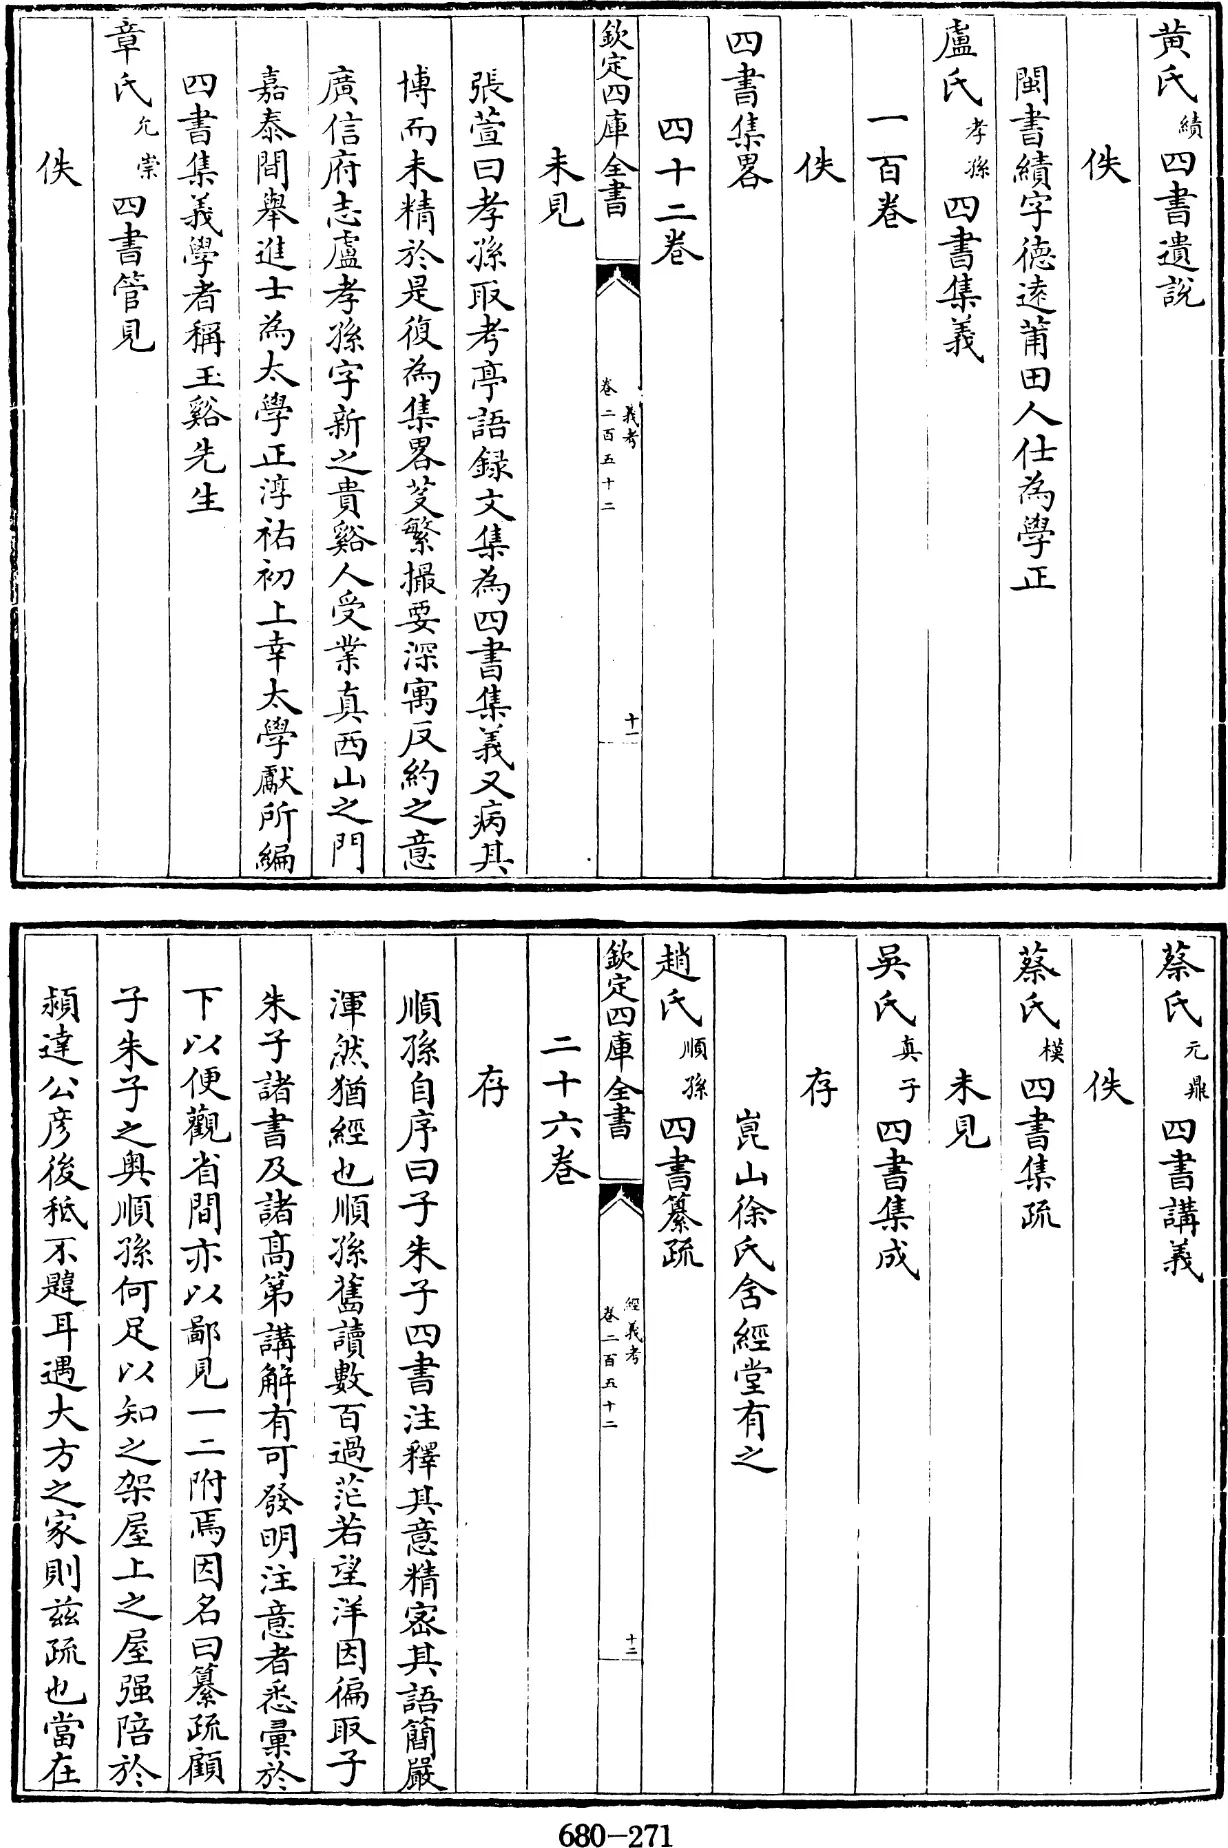 黄氏績四書遺説
佚
閩書績字德逺莆田人仕為學正
盧氏孝孫四書集義
一百巻
佚
四書集畧
四十二巻
欽定四庫全書
義考
卷二百五十二
十一
未見
張萱曰孝孫取考亭語録文集為四書集義又病其
博而未精於是復為集畧芟繁撮要深寓反約之意
廣信府志盧孝孫字新之貴谿人受業真西山之門
嘉泰間舉進士為太學正淳祐初上幸太學獻所編
四書集義學者稱玉谿先生
章氏允崇四書管見
佚
蔡氏元鼎四書講義
佚
蔡氏模四書集疏
未見
吳氏真子四書集成
存
崑山徐氏含經堂有之
趙氏順孫四書纂疏
欽定四庫全書
經義考
卷二百五十二
十二
二十六巻
存
順孫自序曰子朱子四書注釋其意精密其語簡嚴
渾然猶經也順孫舊讀數百過茫若望洋因徧取子
朱子諸書及諸髙第講解有可發明注意者悉彙於
下以便觀省間亦以鄙見一二附焉因名曰纂疏顧
子朱子之奥順孫何足以知之架屋上之屋强陪於
頴達公彦後秪不韙耳遇大方之家則兹疏也當在
680-271